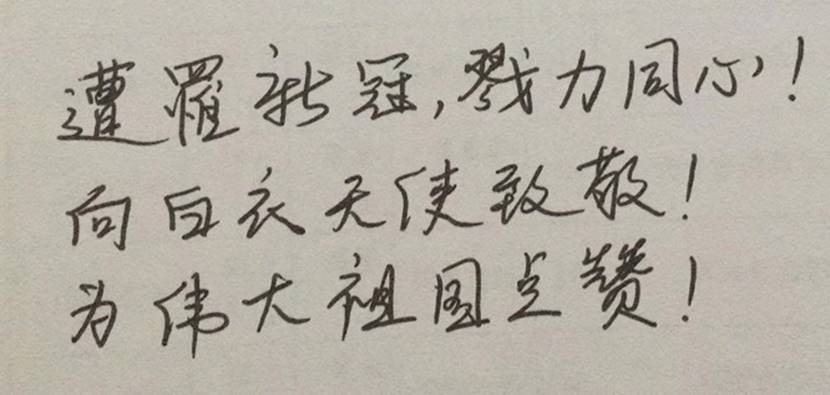 遭罹新冠,戮力同心!
向白衣天使致敬!
为伟大祖国点赞!